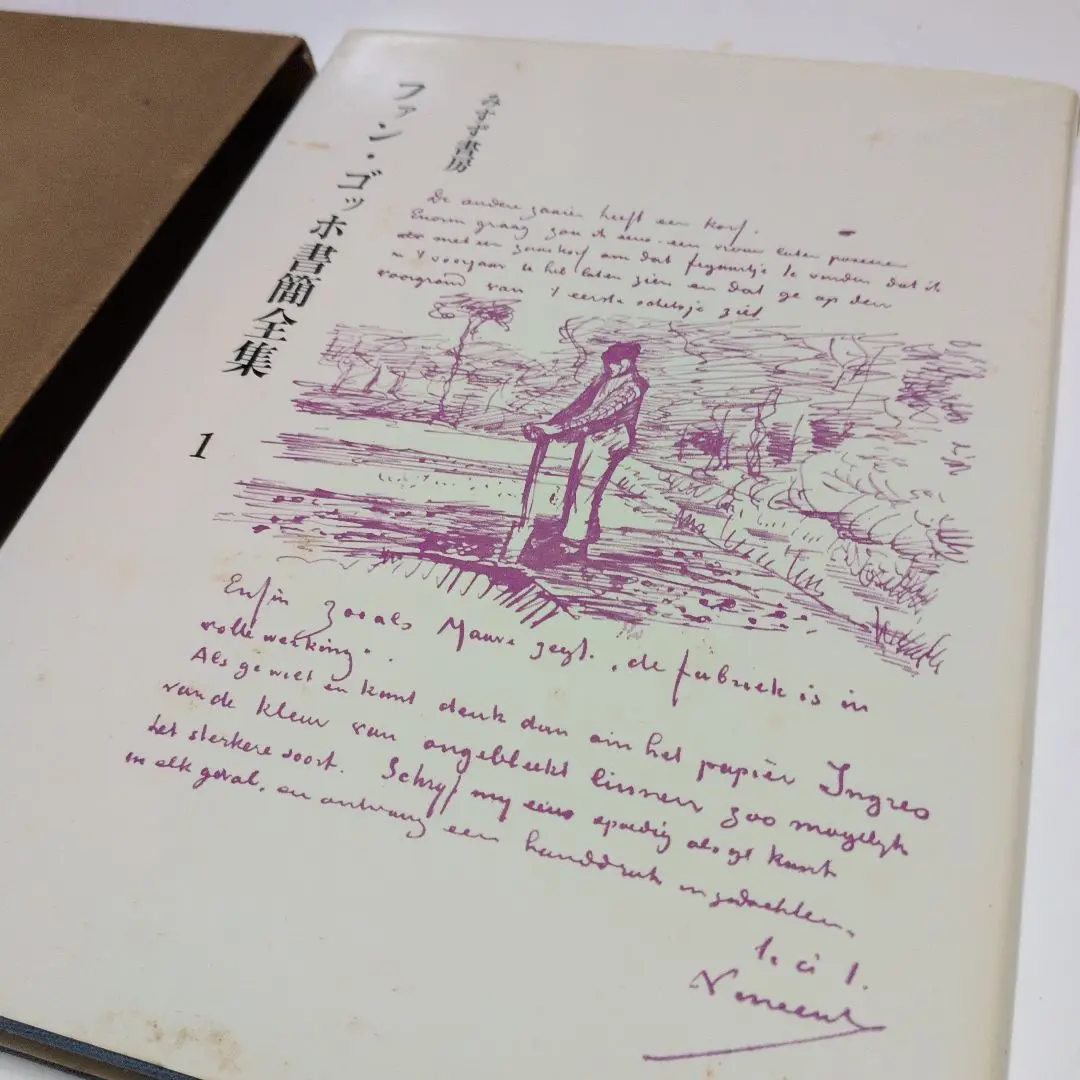 みすず書房
ファン・ゴッホ書簡全集
1
De andere zaaier heeft een korf.
Enorm graag zou ik eens een vrouw laten poseeren
met een zaaikorf om dat figuurtje te vinden dat ik
in 't voorjaar u heb laten zien en dat ge op den
voorgrond van 't eerste schetsje ziet
Enfin zooals Mauve zegt, de fabriek is in
volle werking.
Als ge wiet en kunt denk dan om het papier Ingres
van de kleur van ongebleekt linnen zoo mogelyk
het sterkere soort. Schryf my eens spoedig als ge kunt
in elk geval, en ontvang een handdruk in gedachten,
t. à t.
Vincent